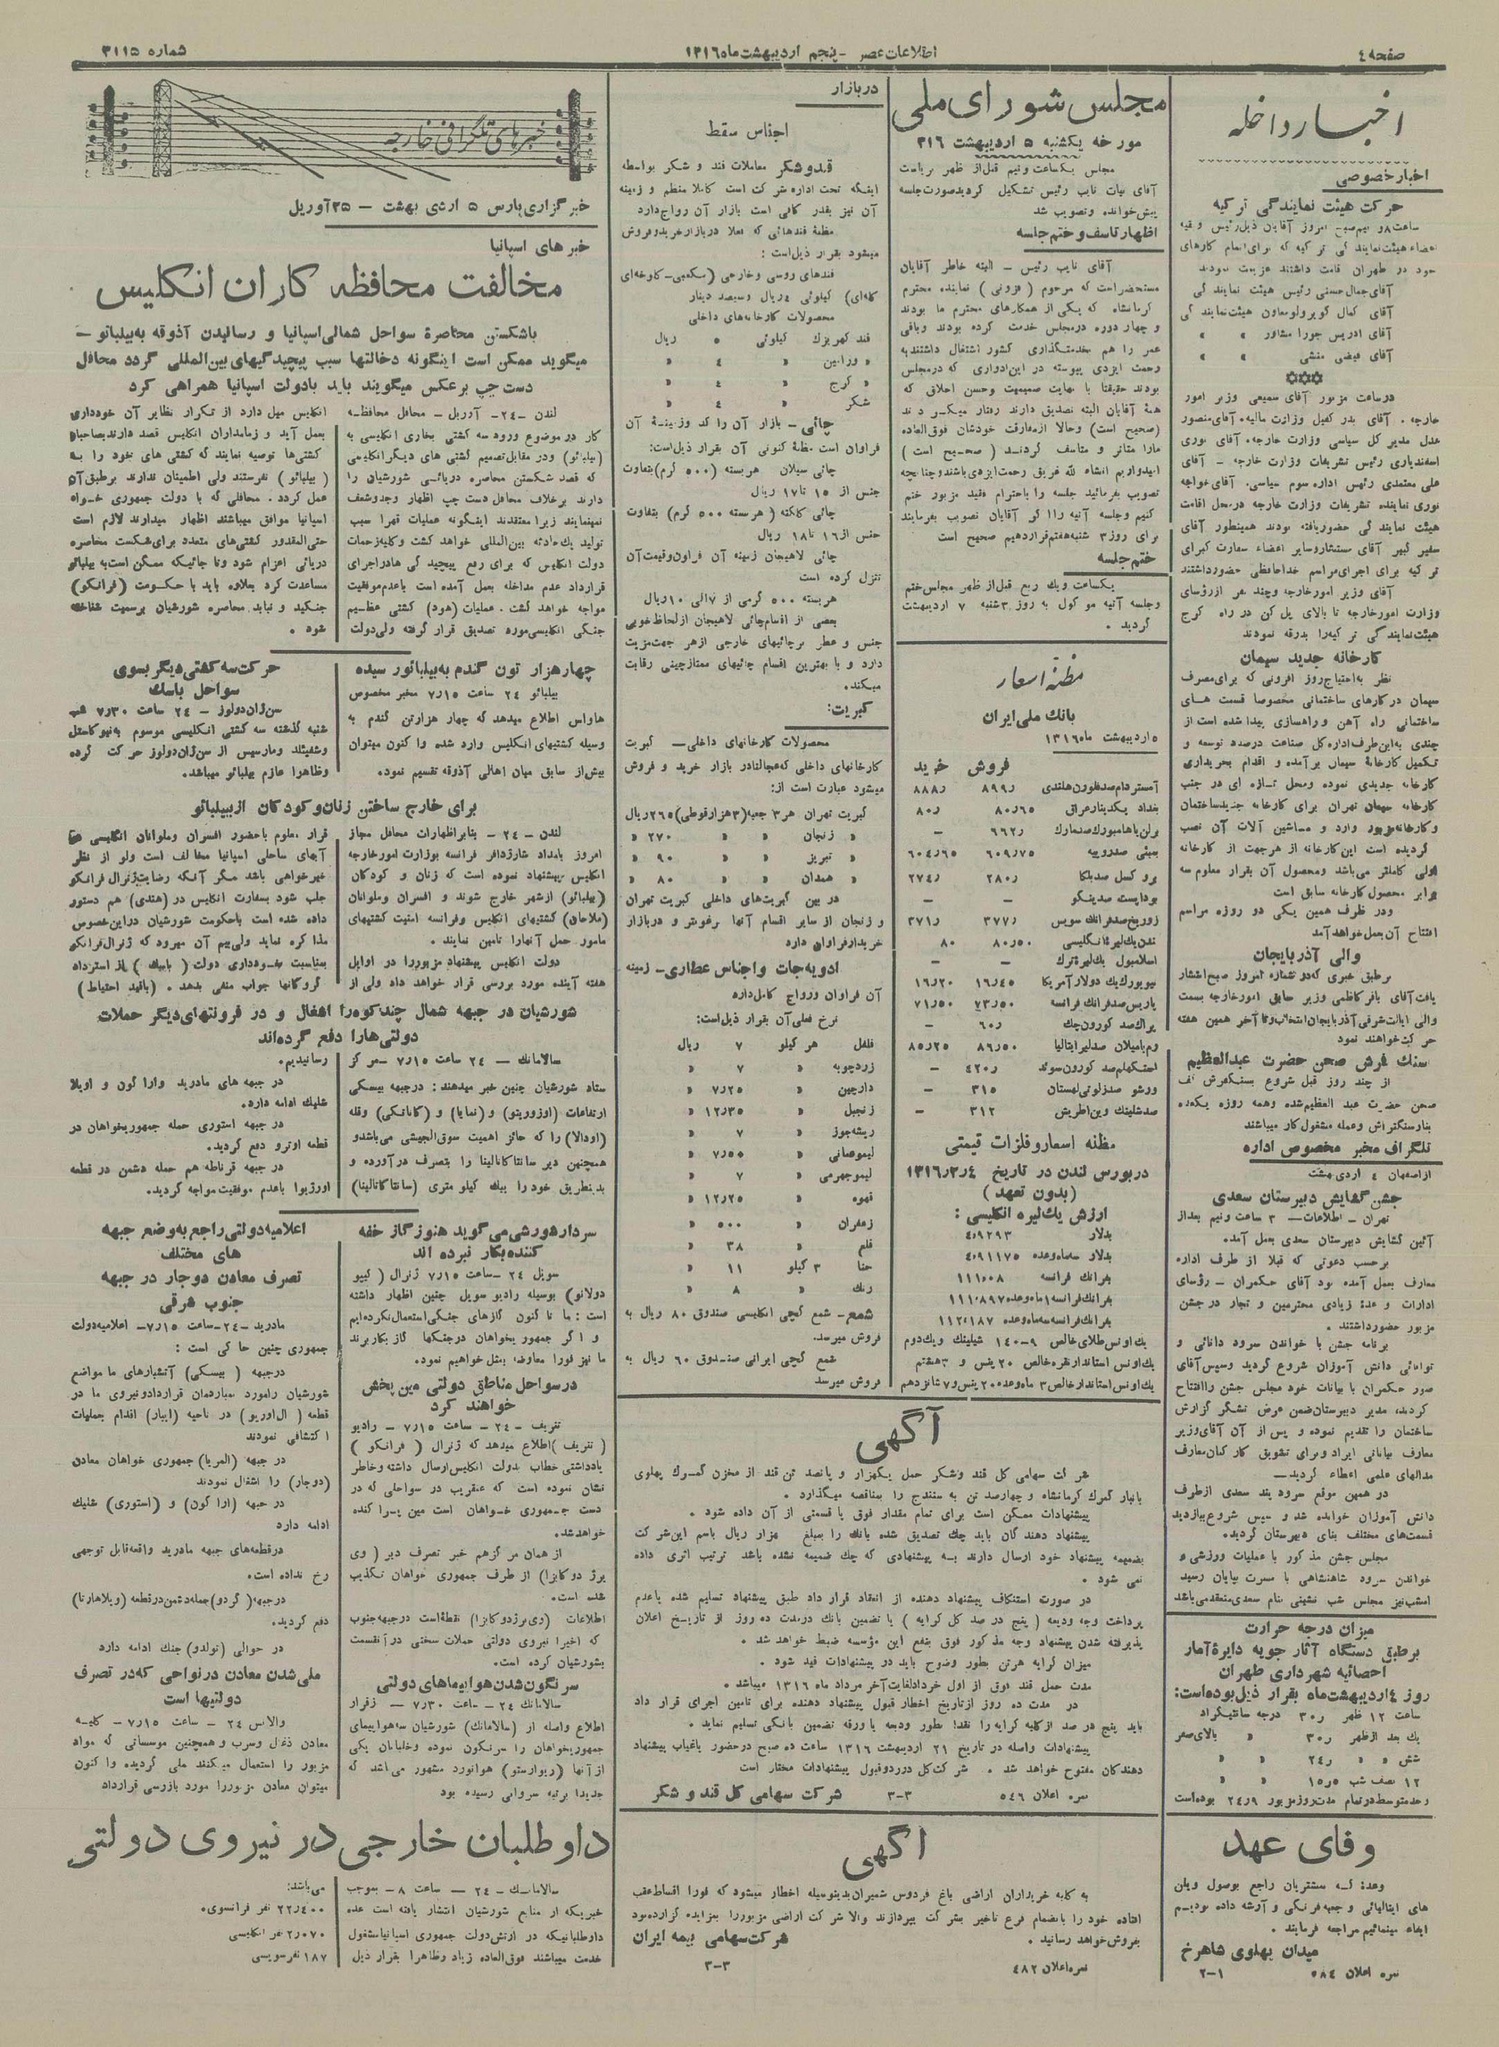 صفحه ٤
اطلاعات عصر - پنجم اردیبهشت ماه ۱۳۱٦
شماره ۳۱۱۵
اخبار داخله
اخبار خصوصی
حرکت هیئت نمایندگی ترکیه
آقای جمال حسنی رئیس هیئت نمایندگی
آقای ادریس جورا مشاور » »
آقای فیضی منشی » »
در ساعت مزبور آقای سمیعی وزیر امور
خارجه . آقای بدر کفیل وزارت مالیه. آقای منصور
عدل مدیر کل سیاسی وزارت خارجه، آقای نوری
اسفندیاری رئیس تشریفات وزارت خارجه - آقای
علی معتمدی رئیس اداره سوم سیاسی. آقای خواجه
نوری نماینده تشریفات وزارت خارجه در محل اقامت
هیئت نمایندگی حضور یافته بودند همینطور آقای
سفیر کبیر آقای مستشار و سایر اعضاء سفارت کبرای
ترکیه برای اجرای مراسم خداحافظی حضور داشتند
آقای وزیر امور خارجه و چند نفر از رؤسای
وزارت امور خارجه تا بالای پل کن در راه کرج
هیئت نمایندگی ترکیه را بدرقه نمودند
کارخانه جدید سیمان
نظر به احتیاج روز افزونی که برای مصرف
سیمان در کارهای ساختمانی مخصوصا قسمت های
ساختمانی راه آهن و راهسازی پیدا شده است از
چندی به این طرف اداره کل صناعت درصدد توسعه و
تکمیل کارخانهٔ سیمان برآمده و اقدام بخریداری
کارخانه جدیدی نموده و محل تازه ای در جنب
کارخانه سیمان تهران برای کارخانه جدید ساختمان
و کارخانه مزبور وارد و ماشین آلات آن نصب
گردیده است این کارخانه از هر جهت از کارخانه
اولی کاملتر می‌باشد و محصول آن بقرار معلوم سه
برابر محصول کارخانه سابق است
و در ظرف همین یکی دو روزه مراسم
افتتاح آن بعمل خواهد آمد
والی آذربایجان
برطبق خبری که در شماره امروز صبح انتشار
یافت آقای باقر کاظمی وزیر سابق امور خارجه بسمت
والی ایالت شرقی آذربایجان انتخاب و تا آخر همین هفته
حرکت خواهند نمود
سنك فرش صحن حضرت عبدالعظیم
از چند روز قبل شروع بسنگفرش کف
صحن حضرت عبدالعظیم شده و همه روزه یکعده
بنا و سنگتراش و عمله مشغول کار میباشند
تلگراف مخبر مخصوص اداره
از اصفهان ٤ اردی بهشت
جشن گشایش دبیرستان سعدی
تهران - اطلاعات - ۳ ساعت و نیم بعد از
آئین گشایش دبیرستان سعدی بعمل آمد.
برحسب دعوتی که قبلا از طرف اداره
معارف بعمل آمده بود آقای حکمران - رؤسای
ادارات و عدهٔ زیادی محترمین و تجار در جشن
مزبور حضور داشتند.
برنامه جشن با خواندن سرود دانائی و
توانائی دانش آموزان شروع گردید و سپس آقای
صور حکمران با بیانات خود مجلس جشن را افتتاح
کردند، مدیر دبیرستان ضمن عرض تشکر گزارش
ساختمان را تقدیم نموده و پس از آن آقای وزیر
معارف بیاناتی ایراد و برای تشویق کارکنان معارف
مدالهای علمی اعطاء گردید-
در همین موقع سرود پند سعدی از طرف
دانش آموزان خوانده شد و سپس شروع ببازدید
قسمت‌های مختلف بنای دبیرستان گردید.
مجلس جشن مذکور با عملیات ورزشی و
خواندن سرود شاهنشاهی با مسرت بپایان رسید
امشب نیز مجلس شب نشینی بنام سعدی منعقد می‌باشد
میزان درجه حرارت
برطبق دستگاه آثار جویه دایرهٔ آمار
احصائیه شهرداری طهران
روز ٤ اردیبهشت ماه بقرار ذیل بوده است:
ساعت ۱۲ ظهر ۳۰ر درجه سانتیگراد
یك بعد از ظهر ۳۰ر » بالای صفر
شش » » ۲٤ر » »
۱۲ نصف شب ۱۵ر۵ » »
وفای عهد
میدان پهلوی شاهرخ
نمره اعلان ۵۸٤ ۱-۲
مجلس شورای ملی
مورخه یکشنبه ۵ اردیبهشت ۳۱٦
مجلس یکساعت و نیم قبل از ظهر بریاست
آقای بیات نایب رئیس تشکیل گردید صورت جلسه
پیش خوانده و تصویب شد
اظهار تاسف و ختم جلسه
آقای نایب رئیس - البته خاطر آقایان
مستحضر است که مرحوم ( فزونی ) نماینده محترم
کرمانشاه که یکی از همکارهای محترم ما بودند
و چهار دوره در مجلس خدمت کرده بودند و باقی
عمر را هم خدمتگذاری کشور اشتغال داشتند به
رحمت ایزدی پیوسته در این ادواری که در مجلس
بودند حقیقتا با نهایت صمیمیت و حسن اخلاق که
همهٔ آقایان البته تصدیق دارند رفتار میکردند
(صحیح است) و حالا از مفارقت خودشان فوق‌العاده
مارا متاثر و متاسف کردند ( صحیح است )
امیدواریم انشاء الله غریق رحمت ایزدی باشند و چنانچه
تصویب بفرمائید جلسه را باحترام فقید مزبور ختم
کنیم و جلسه آتیه را اگر آقایان تصویب بفرمایند
برای روز ۳ شنبه هفتم قرار دهیم صحیح است
ختم جلسه
یکساعت و یك ربع قبل از ظهر مجلس ختم
و جلسه آتیه موکول به روز ۳ شنبه ۷ اردیبهشت
گردید .
مظنهٔ اسعار
بانك ملی ایران
۵ اردیبهشت ماه ۱۳۱٦
فروش خرید
آمستردام صد فلورن هلندی ۸۹۹ر ۸۸۸ر
بغداد یکدینار عراق ۸۰ر٦۵ ۸۰ر
برلن یا هامبورك صد مارك ۹٦۲ر -
بمبئی صد روپیه ٦۰۹ر۷۵ ٦۰٤ر٦۵
بروکسل صد بلکا ۲۸۰ر ۲۷٤ر
بوداپست صد پنگو - -
زوریخ صد فرانك سویس ۳۷۷ر ۳۷۱ر
لندن یك لیرهٔ انگلیسی ۸۰ر۵۰ ۸۰
اسلامبول یك لیرهٔ ترك - -
نیویورك یك دولار آمریکا ۱٦ر٤۵ ۱٦ر۲۰
پاریس صد فرانك فرانسه ۷۳ر۵۰ ۷۱ر۵۰
پراك صد کورون چك ٦۰ر -
رم یا میلان صد لیر ایتالیا ۸٦ر۵۰ ۸۵ر۲۵
استکهلم صد کورون سوئد ٤۲۰ر -
ورشو صد زلوتی لهستان ۳۱۵ -
صد شلینك وین اطریش ۳۱۲ -
مظنه اسعار و فلزات قیمتی
در بورس لندن در تاریخ ۱۳۱٦ر۲ر٤
(بدون تعهد)
ارزش یك لیره انگلیسی :
بدلار ٤ر۹۲۹۳
بدلار سه ماه وعده ٤ر۹۱۱۷۵
بفرانك فرانسه ۱۱۱ر۰۸
بفرانك فرانسه ۱ ماه وعده ۱۱۱ر۸۹۷
بفرانك فرانسه سه ماه وعده ۱۱۲ر۱۸۷
یك اونس طلای خالص ۹-۱٤۰ شیلینك و یك دوم
یك اونس استاندارد نقره خالص ۲۰ پنس و ۳ هشتم
یك اونس استاندارد خالص ۳ ماه وعده ۲۰ پنس و ۷ شانزدهم
در بازار
اجناس سقط
قند و شکر معاملات قند و شکر بواسطه
اینکه تحت اداره شرکت است کاملا منظم و زمینه
آن نیز بقدر کافی است بازار آن رواج دارد
مظنهٔ قندهائی که فعلا در بازار خرید و فروش
میشود بقرار ذیل است :
قندهای روسی و خارجی (مکعبی-کلوخه‌ای
کله‌ای) کیلوئی ٤ ریال و سیصد دینار
محصولات کارخانه‌های داخلی
قند کهریزك کیلوئی ۵ ریال
» ورامین » ٤ »
» کرج » ٤ »
شکر » ٤ »
چائی - بازار آن راکد و زمینهٔ آن
فراوان است مظنهٔ کنونی آن بقرار ذیل است:
چائی سیلان هر بسته (۵۰۰ گرم) بتفاوت
جنس از ۱۵ تا ۱۷ ریال
چائی کلکته ( هر بسته ۵۰۰ گرم) بتفاوت
جنس از ۱٦ تا ۱۸ ریال
چائی لاهیجان زمینه آن فراوان و قیمت آن
تنزل کرده است
هر بسته ۵۰۰ گرمی از ۷ الی ۱۰ ریال
بعضی از اقسام چائی لاهیجان از لحاظ خوبی
جنس و عطر بر چائیهای خارجی از هر جهت مزیت
دارد و با بهترین اقسام چائیهای ممتاز چینی رقابت
میکند.
کبریت:
محصولات کارخانهای داخلی - کبریت
کارخانهای داخلی که عجالتا در بازار خرید و فروش
میشود عبارت است از:
کبریت تهران هر ۳ جعبه (۳ هزار قوطی) ۲٦۵ ریال
» زنجان » » ۲۷۰ »
» تبریز » » ۹۰ »
» همدان » » ۸۰ »
در بین کبریت‌های داخلی کبریت تهران
و زنجان از سایر اقسام آنها مرغوبتر و در بازار
خریدار فراوان دارد
ادویه جات و اجناس عطاری - زمینه
آن فراوان و رواج کامل دارد
نرخ فعلی آن بقرار ذیل است:
فلفل هر کیلو ۷ ریال
زردچوبه » ۷ »
دارچین » ۷ر۲۵ »
زنجبیل » ۱۲ر۳۵ »
ریشه جوز » ۷ »
لیمو عمانی » ۷ر۵۰ »
لیمو جهرمی » ۷ »
قهوه » ۱۲ر۲۵ »
زعفران » ۵۰۰ »
قلم » ۳۸ »
حنا ۳ کیلو ۱۱ »
رنك » ۸ »
شمع- شمع گچی انگلیسی صندوق ۸۰ ریال به
فروش میرسد.
شمع گچی ایرانی صندوق ٦۰ ریال به
فروش میرسد
آگهی
شرکت سهامی کل قند و شکر حمل یکهزار و پانصد تن قند از مخزن گمرك پهلوی
بانبار گمرك کرمانشاه و چهارصد تن به سنندج را بمناقصه میگذارد .
پیشنهادات ممکن است برای تمام مقدار فوق یا قسمتی از آن داده شود .
پیشنهاد دهندگان باید چك تصدیق شده بانك را بمبلغ هزار ریال باسم این شرکت
بضمیمه پیشنهاد خود ارسال دارند به پیشنهادی که چك ضمیمه نشده باشد ترتیب اثری داده
نمی شود .
در صورت استنکاف پیشنهاد دهنده از انعقاد قرار داد طبق پیشنهاد تسلیم شده یا عدم
پرداخت وجه ودیعه ( پنج در صد کل کرایه ) یا تضمین بانك در مدت ده روز از تاریخ اعلان
پذیرفته شدن پیشنهاد وجه مذکور فوق بنفع این مؤسسه ضبط خواهد شد .
میزان کرایه هر تن بطور وضوح باید در پیشنهادات قید شود .
مدت حمل قند فوق از اول خرداد لغایت آخر مرداد ماه ۱۳۱٦ میباشد .
در مدت ده روز از تاریخ اخطار قبول پیشنهاد دهنده برای تامین اجرای قرار داد
باید پنج در صد از کلیه کرایه را نقداً بطور ودیعه یا ورقه تضمین بانکی تسلیم نماید .
پیشنهادات واصله در تاریخ ۲۱ اردیبهشت ۱۳۱٦ ساعت ده صبح در حضور یا غیاب پیشنهاد
دهندگان مفتوح خواهد شد . شرکت کل در رد و قبول پیشنهادات مختار است
نمره اعلان ۵٤٦ ۳-۳ شرکت سهامی کل قند و شکر
آگهی
به کلیه خریداران اراضی باغ فردوس شمیران بدینوسیله اخطار میشود که فورا اقساط عقب
افتاده خود را بانضمام فرع تاخیر بشرکت بپردازند والا شرکت اراضی مزبور را بمزایده گزارده بود
بفروش خواهد رسانید .
شرکت سهامی بیمه ایران
نمره اعلان ٤۸۲ ۳-۳
خبرهای تلگرافی خارجه
خبرگزاری پارس ۵ اردی بهشت - ۲۵ آوریل
خبرهای اسپانیا
مخالفت محافظه کاران انگلیس
باشکستن محاصرهٔ سواحل شمالی اسپانیا و رسانیدن آذوقه به بیلبائو -
میگوید ممکن است اینگونه دخالتها سبب پیچیدگیهای بین‌المللی گردد محافل
دست چپ برعکس میگویند باید بادولت اسپانیا همراهی کرد
لندن -۲٤- آوریل - محافل محافظه
کار در موضوع ورود سه کشتی بخاری انگلیسی به
(بیلبائو) و در مقابل تصمیم کشتی های دیگر انگلیسی
که قصد شکستن محاصره دریائی شورشیان را
دارند برخلاف محافل دست چپ اظهار وجد و شعف
نمینمایند زیرا معتقدند اینگونه عملیات قهرا سبب
تولید یك حادثه بین‌المللی خواهد گشت و کلیه زحمات
دولت انگلیس که برای رفع پیچیدگی ها در اجرای
قرارداد عدم مداخله بعمل آمده است با عدم موفقیت
مواجه خواهد گشت. عملیات (هود) کشتی عظیم
جنگی انگلیسی مورد تصدیق قرار گرفته ولی دولت
انگلیس میل دارد از تکرار نظایر آن خودداری
بعمل آید و زمامداران انگلیس قصد دارند بصاحبان
کشتی‌ها توصیه نمایند که کشتی های خود را به
( بیلبائو ) نفرستند ولی اطمینان ندارند برطبق آن
عمل گردد. محافلی که با دولت جمهوری خواه
اسپانیا موافق میباشند اظهار میدارند لازم است
حتی‌المقدور کشتی‌های متعدد برای شکست محاصره
دریائی اعزام شود و تا جائیکه ممکن است به بیلبائو
مساعدت کرد بعلاوه باید با حکومت (فرانکو)
جنگید و نباید محاصره شورشیان برسمیت شناخته
شود .
چهار هزار تون گندم به بیلبائو رسیده
بیلبائو ۲٤ ساعت ۷ر۱۵ مخبر مخصوص
هاواس اطلاع میدهد که چهار هزار تن گندم به
وسیله کشتیهای انگلیس وارد شده و اکنون میتوان
بیش از سابق میان اهالی آذوقه تقسیم نمود.
حرکت سه کشتی دیگر بسوی
سواحل باسك
سن ژان دولوز - ۲٤ ساعت ۷ر۳۰ شب
شنبه گذشته سه کشتی انگلیسی موسوم به نیوکاستل
و شفیلد و مارسیس از سن ژان دولوز حرکت کرده
و ظاهرا عازم بیلبائو میباشد.
برای خارج ساختن زنان و کودکان از بیلبائو
لندن - ۲٤ - بنابر اظهارات محافل مجاز
امروز بامداد شارژدافر فرانسه بوزارت امور خارجه
انگلیس پیشنهاد نموده است که زنان و کودکان
(بیلبائو) از شهر خارج شوند و افسران و ملوانان
(ملاحان) کشتیهای انگلیس و فرانسه امنیت کشتیهای
مامور حمل آنها را تامین نمایند .
دولت انگلیس پیشنهاد مزبور را در اوایل
هفته آینده مورد بررسی قرار خواهد داد ولی از
قرار معلوم با حضور افسران و ملوانان انگلیسی در
آبهای ساحلی اسپانیا مخالف است ولو از نظر
خیرخواهی باشد مگر آنکه رضایت ژنرال فرانکو
جلب شود بسفارت انگلیس در (هندی) هم دستور
داده شده است با حکومت شورشیان در این خصوص
مذاکره نماید ولی بیم آن میرود که ژنرال فرانکو
بمناسبت خودداری دولت (باسك) از استرداد
گروگانها جواب منفی بدهد . (باقید احتیاط)
شورشیان در جبهه شمال چند کوه را اشغال و در فرونتهای دیگر حملات
دولتی هارا دفع کرده‌اند
سالامانك - ۲٤ ساعت ۷ر۱۵ - مرکز
ستاد شورشیان چنین خبر میدهند : در جبهه بیسکی
ارتفاعات (اوزوریتو) و (نمایا) و (کامانکی) وقله
(اودالا) را که حائز اهمیت سوق‌الجیشی می‌باشد و
همچنین دیر سانتاکاتالینا را بتصرف درآورده و
بدینطریق خود را بیك کیلومتری (سانتاکاتالینا)
رسانیدیم.
در جبهه های مادرید و اراگون و اویلا
شلیك ادامه دارد.
در جبهه استوری حمله جمهوریخواهان در
قطعه اوترو دفع گردید.
در جبهه قرناطه هم حمله دشمن در قطعه
اورژیوا با عدم موفقیت مواجه گردید.
سردار شورشی می گوید هنوز گاز خفه
کننده بکار نبرده اند
سویل ۲٤ - ساعت ۷ر۱۵ ژنرال (کیپو
دولانو) بوسیله رادیو سویل چنین اظهار داشته
است : ما تا کنون گازهای جنگی استعمال نکرده‌ایم
و اگر جمهور یخواهان در جنگها گاز بکار برند
ما نیز فورا معاوضه بمثل خواهیم نمود.
در سواحل مناطق دولتی مین پخش
خواهند کرد
تنریف - ۲٤ - ساعت ۷ر۱۵ - رادیو
( تنریف ) اطلاع میدهد که ژنرال ( فرانکو )
یادداشتی خطاب بدولت انگلیس ارسال داشته و خاطر
نشان نموده است که عنقریب در سواحلی که در
دست جمهوری خواهان است مین پراکنده
خواهد شد.
از همان مرکز هم خبر تصرف دیر ( وی
یرژ دوکابزا) از طرف جمهوری خواهان تکذیب
شده است.
اطلاعات (وی یرژ دوکابزا) نقطه‌ا است در جبهه جنوب
که اخیرا نیروی دولتی حملات سختی در آن قسمت
بشورشیان کرده است.
سرنگون شدن هواپیماهای دولتی
سالامانك ۲٤ - ساعت ۷ر۳۰ - از قرار
اطلاع واصله از (سالامانك) شورشیان سه هواپیمای
جمهوریخواهان را سرنگون نموده و خلبانان یکی
از آنها (ریوارستو) هوانورد مشهور می‌باشد که
جدیدا برتبه سروانی رسیده بود
اعلامیه دولتی راجع به وضع جبهه
های مختلف
تصرف معادن دوجار در جبهه
جنوب شرقی
مادرید -۲٤- ساعت ۷ر۱۵ - اعلامیه دولت
جمهوری چنین حاکی است :
در جبهه ( بیسکی) آتشبارهای ما مواضع
شورشیان را مورد بمباردمان قرار داد و نیروی ما در
قطعه ( ال‌اوریو) در ناحیه (ایبار) اقدام بعملیات
اکتشافی نمودند
در جبهه (المریا) جمهوری خواهان معادن
(دوجار) را اشغال نمودند
در جبهه (اراگون) و (استوری) شلیك
ادامه دارد
در قطعه‌های جبهه مادرید واقعه قابل توجهی
رخ نداده است.
در جبهه( گردو) حمله دشمن در قطعه (ویلاهارتا)
دفع گردید.
در حوالی (تولدو) جنك ادامه دارد
ملی شدن معادن در نواحی که در تصرف
دولتیها است
والانس ۲٤ - ساعت ۷ر۱۵ - کلیه
معادن ذغال و سرب و همچنین موسساتی که مواد
مزبور را استعمال میکنند ملی گردیده و اکنون
میتوان معادن مزبور را مورد بازرسی قرار داد
داوطلبان خارجی در نیروی دولتی
سالامانك - ۲٤ - ساعت ۸ - بموجب
خبریکه از منابع شورشیان انتشار یافته است عده
داوطلبانیکه در ارتش دولت جمهوری اسپانیا مشغول
خدمت میباشند فوق‌العاده زیاد و ظاهرا بقرار ذیل
می‌باشد:
۲۲ر٤۰۰ نفر فرانسوی.
۲ر۰۷۰ نفر انگلیسی
۱۸۷ نفر سویسی